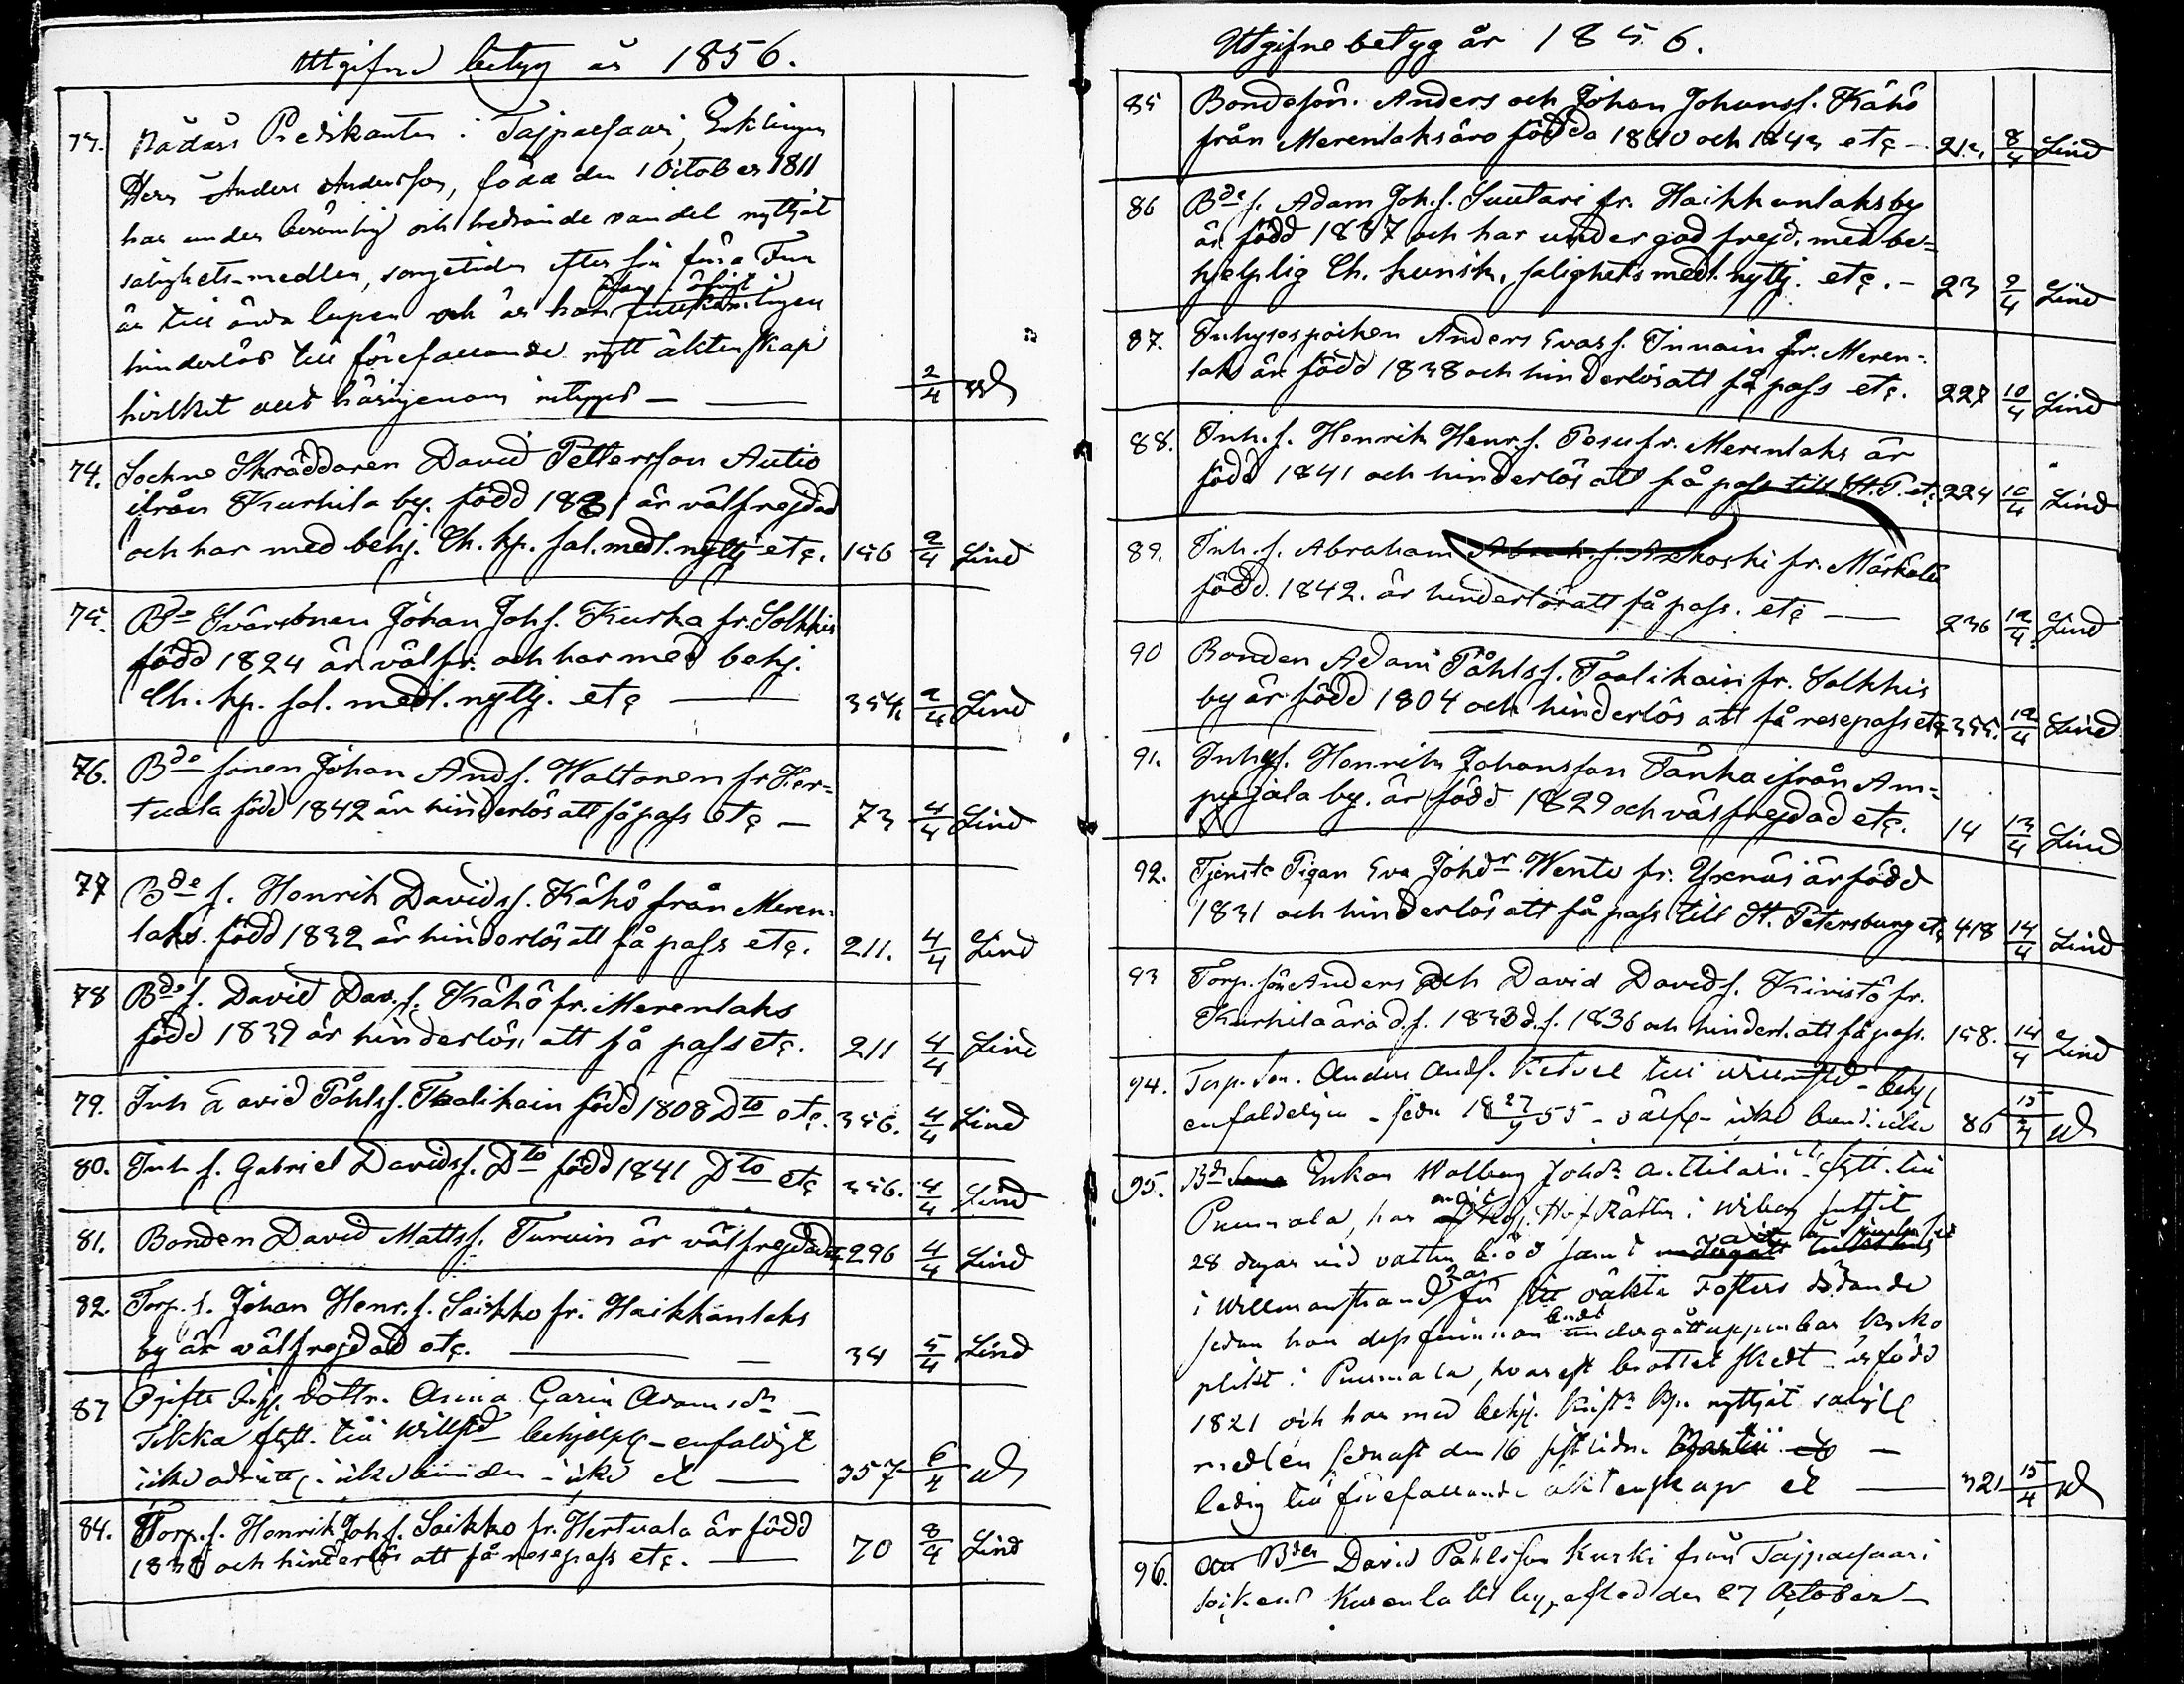 Utgifne betyg år 1856.
73. Nådårs Predikanten i Taipalsaari, Enklingen
Herr Anders Andersson, född den 1 October 1811
har under berömlig och hedrande vandel nyttjat
salighets-medlen, sorgetiden efter sin förra Fru
är till ända lupen och är han
hinderlös till förefallande nytt äktenskap
hvilket härigenom intygas — 2/4
74. Sockne Skräddaren David Pettersson Autio
ifrån Kurhila by. född 1831 är välfrejdad
och har med behj. Ch. kp. sal. medl. nyttj etc. 156 2/4 Lind
75. Bde Svärsonen Johan Johs. Kurka fr. Solkkis
född 1824 är välfr. och har med behj.
Ch. kp. sal. medl. nyttj. etc — 354 2/4 Lind
76. Bde sonen Johan Ands. Waltonen fr Her-
tuala född 1842 är hinderlös att få pass etc — 73 4/4 Lind
77 Bde s. Henrik Davids. Kähö från Meren-
laks. född 1832 är hinderlös att få pass etc. 211. 4/4 Lind
78 Bde s. David Dav. s. Kähö fr. Merenlaks
född 1839 är hinderlös att få pass etc. 211 4/4 Lind
79. Inh David Påhlss. Taalikain född 1808 Dto etc. 356. 4/4 Lind
80. Inh s. Gabriel Davidss. Dto född 1841 Dto etc 356. 4/4 Lind
81. Bonden David Mattss. Turuin är välfrejdad etc 296 4/4 Lind
82. Torp. s. Johan Henr. s. Saikko fr. Haikkanlaks
by är välfrejdad etc. — 34 5/4 Lind
83 Ogifta Inh. dottr. Anna Carin Adamsdr
Sikka flytt. till Willstd behjelpl — enfaldigt
icke — icke bunden — icke et — 357 6/4
84. Torp. s. Henrik Johs. Saikko fr. Hertuala är född
1838 och hinderlös att få resepass etc. — 70 8/4 Lind
Utgifne betyg år 1856.
85 Bondesön. Anders och Johan Johanss. Kähö
från Merenlaks äro födda 1840 och 1843 etc — 212. 8/4 Lind
86 Bde s. Adam Joh. s. Suutari fr. Haikkanlaks by
är född 1837 och har under god frejd. med be-
hjelplig Ch. kunsk. salighets medl. nyttj. etc. — 23 9/4 Lind
87. Inhyses pojken Anders Evas s. Innain fr. Meren-
laks är född 1838 och hinderlös att få pass etc. 227 10/4 Lind
88. Inh. s. Henrik Henr. s. Pesu fr. Merenlaks är
född 1841 och hinderlös att få pass till St. P. etc 224 10/4 Lind
89. Inh. s. Abraham Abrah. s. Axkoski fr. Märkälä
född. 1842. är hinderlös att få pass. etc — 236 12/4 Lind
90 Bonden Adam Påhlss. Taalikain fr. Solkkis
by är född 1804 och hinderlös att få resepass etc 355. 12/4 Lind
91. Inhys. Henrik Johansson Tanka ifrån Am-
pujala by. är född 1829 och välfrejdad etc. 14 13/4 Lind
92. Tjenste Pigan Eva Johdr. Wento fr. Yxnäs är född
1831 och hinderlös att få pass till St. Petersburg etc 418 14/4 Lind
93 Torp. sön Anders och David Davids. Kiristö fr.
Kurhila äro d. f. 1833 d. s. 1836 och hinderl. att få pass. 158. 14/4 Lind
94. Torp. Son. Anders Ands. till Willmstd — behj
enfaldeligen — född 18 27/4 55 — välfr — icke bunden icke 86 15/4
95. Bde Enkan Walborg Johdr Anttilain flytt. till
Puumala, har Hof Rätten i Wiborg suttit
28 dagar vid vatten bröd samt
i Willmanstrand 2 år för oäkta Fosters dödande
sedan hon dessförinnan undergått uppenbar kyrko
plikt i Puumala, hvarest brottet skedt — är född
1821 och har med behj. Krist. kp. nyttjat salig
medlen sednast den 16 sistlidne Martii —
ledig till förefallande äktenskap et — 321 15/4
96. Bden David Påhlsson Kurki från Taipalsaari
Socken Kurenlaks by, afled den 27 October —